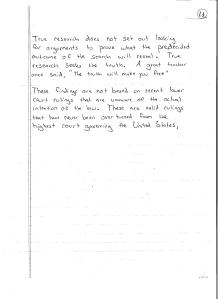 14
True research does not set out looking
for arguments to prove what the predecided
outcome of the search will reveal. True
research seeks the truth. A great teacher
once said, "The truth will make you free"
These findings are not based on recent lower
court rulings that are unaware of the actual
intention of the law. These are valid rulings
that have never been overturned from the
highest court governing the United States,